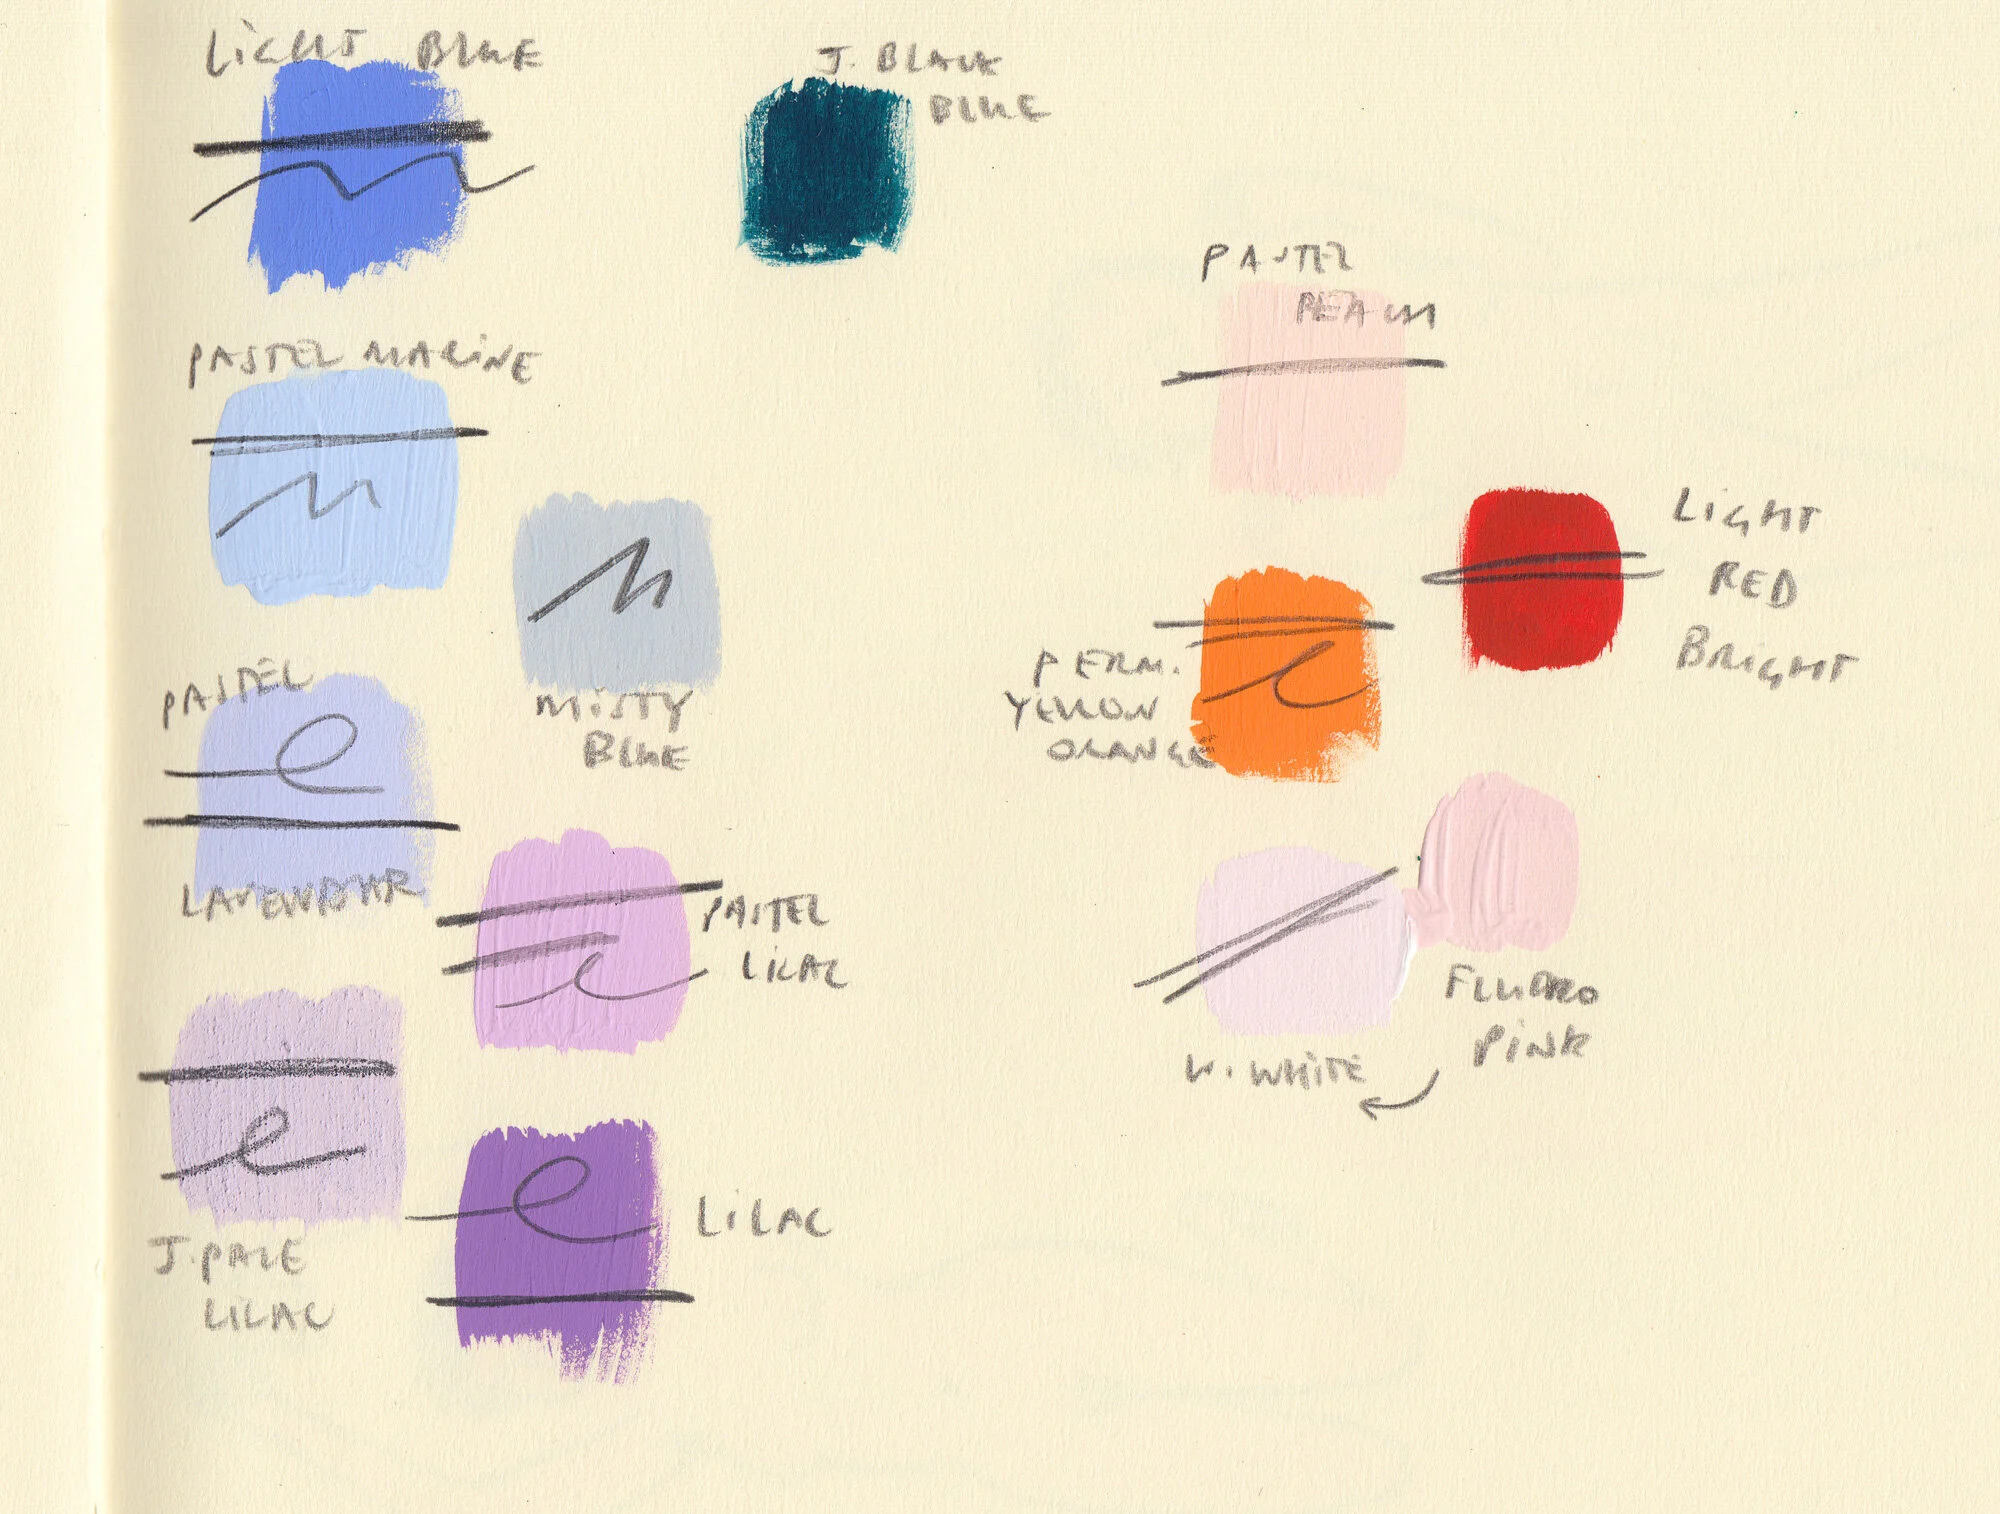 LiGHT BLUE
J. BLACK
BLUE
PASTEL MARINE
MiSTY
BLUE
PASTEL
LAVENDAR
PASTEL
LiLAC
J. PALE
LiLAC
LiLAC
PASTEL
PEACH
LiGHT
RED
BRiGHT
PERM.
YELLOW
ORANGE
FLUORO
PiNK
W. WHiTE